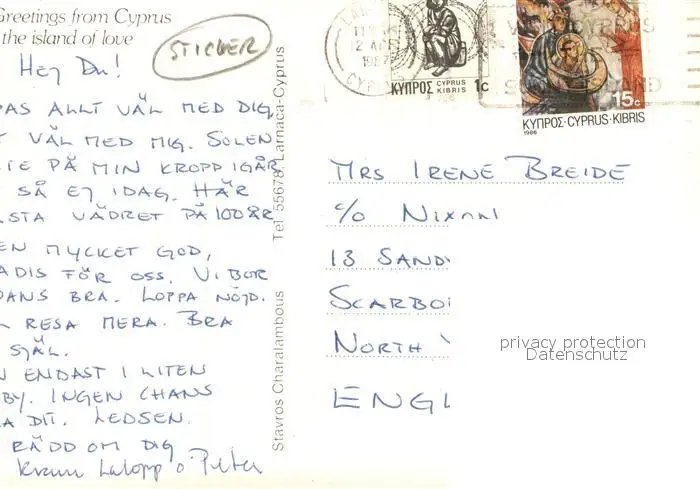 Greetings from Cyprus
the island of love
STICKER
Hej Du!
PAS ALLT VÄL MED DIG
VÄL MED MIG. SOLEN
PÅ MIN KROPP IGÅR
SÅ EJ IDAG. HÄR
STA VÄDRET PÅ 100 ÅR
EN MYCKET GOD,
ADIS FÖR OSS. VI BOR
DANS BRA. LOPPA NÖJD.
RESA MERA. BRA
SJÄL.
N ENDAST I LITEN
BY. INGEN CHANS
A DIT. LEDSEN.
RÄDD OM DIG
Kram Lalopp o Peter
Stavros Charalambous Tel. 55678, Larnaca-Cyprus
12 1987
CYP
ΚΥΠΡΟΣ CYPRUS KIBRIS 1c
15c
ΚΥΠΡΟΣ·CYPRUS·KIBRIS
1986
MRS IRENE BREIDE
c/o NIXON
13 SAND
SCARBO
NORTH Y
ENGL
privacy protection
Datenschutz